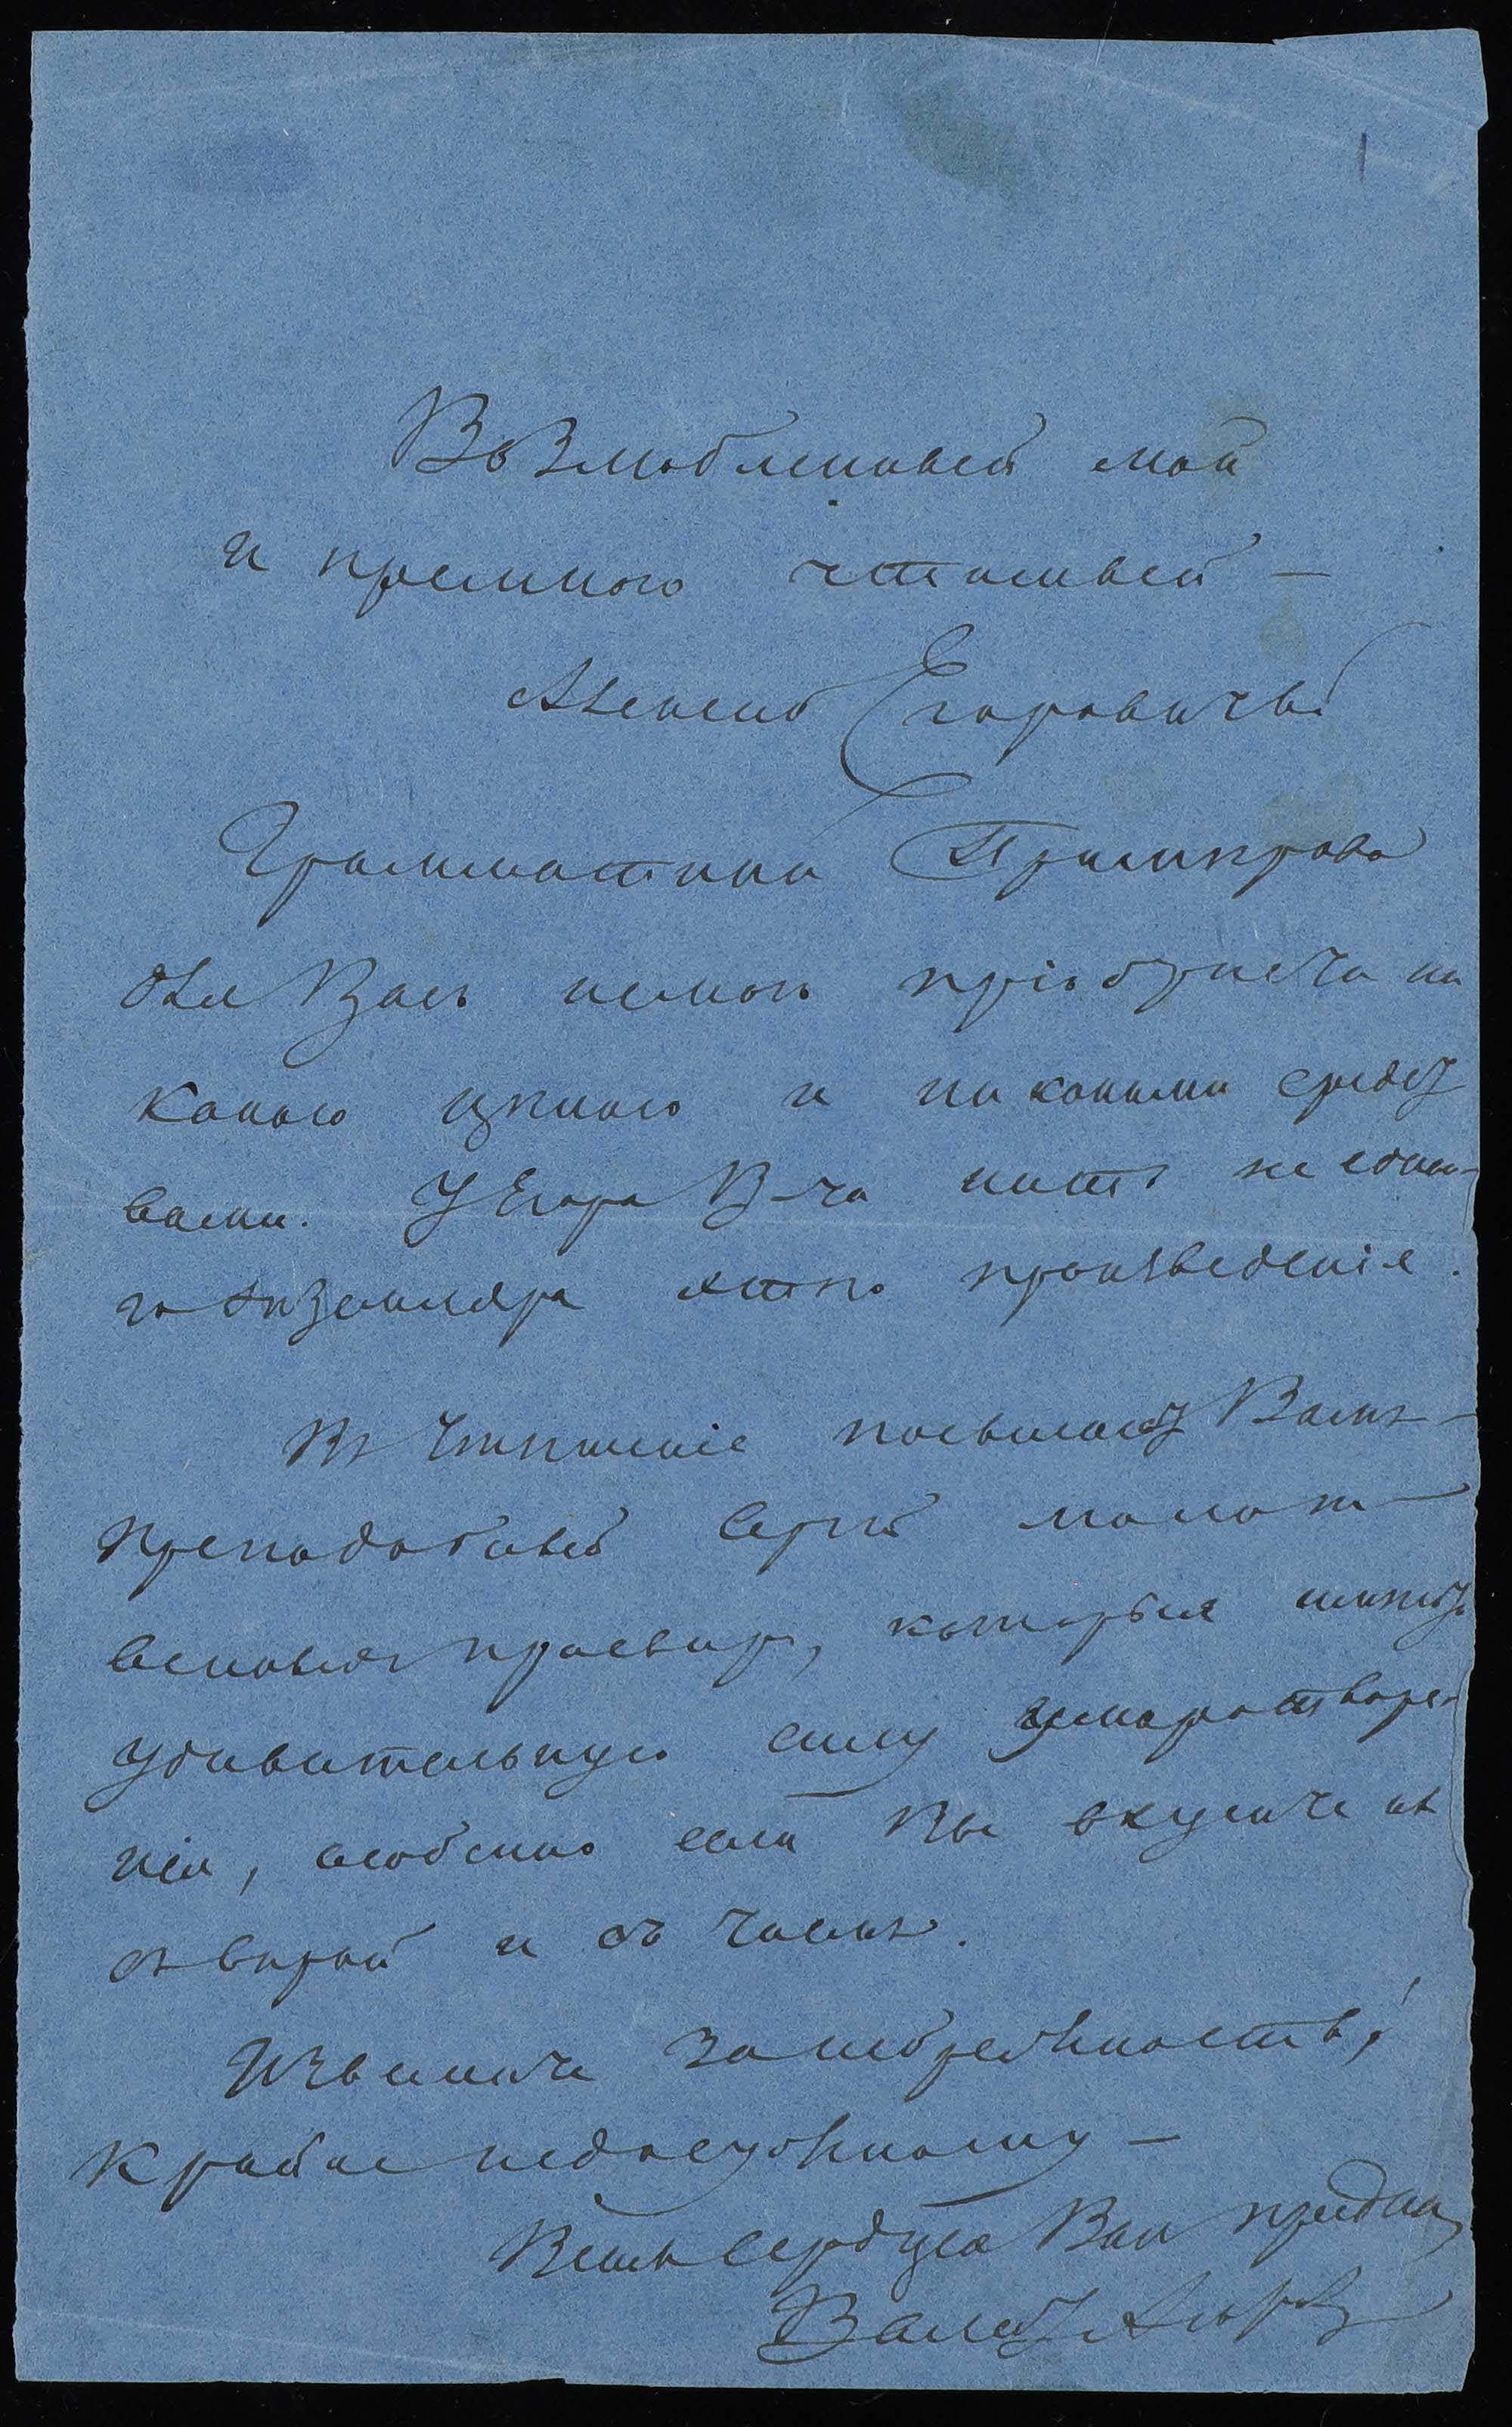 Возлюбленный мой
и премного чтимый —
Алексей Егоровичь!
Грамматики Примпрова
для Васъ немогъ пріобрѣсти ни
какою цѣною и никакими средст
вами. У Егора В-ча нѣтъ не едина-
го экземпляра этого произведенія.
Въ утѣшеніе посылаю Вамъ —
преподобный Сергій
просвиръ, которыя имѣютъ
удивительную силу умиротворе-
нія, особенно если Вы вкусите ихъ
съ вѣрой и съ чаемъ.
Извините за небрежность,
крайне недосужному —
Всѣмъ сердцемъ Вамъ преданный